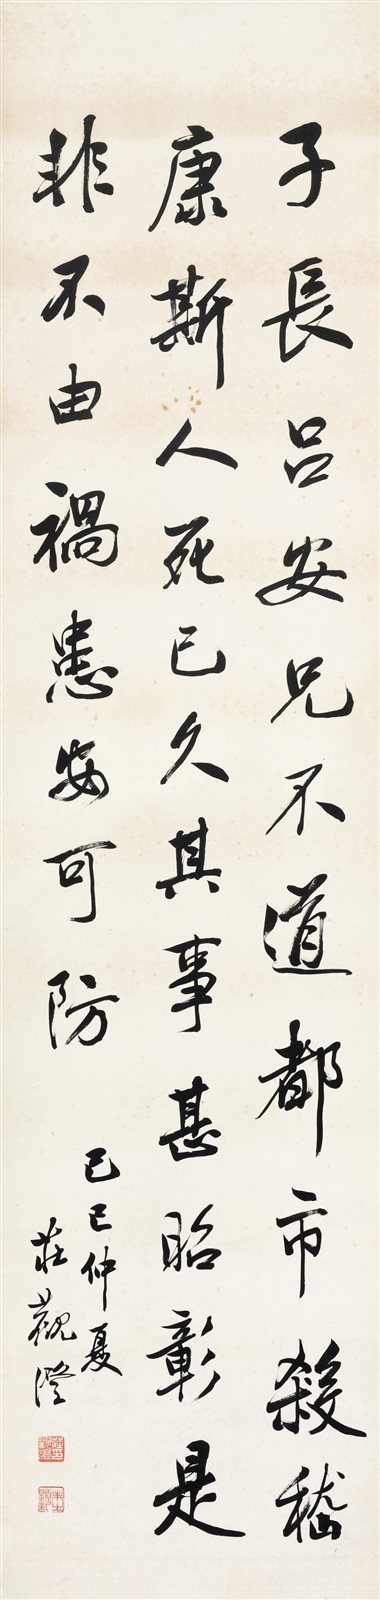 子長吕安兄不道都市殺嵇
康斯人死已久其事甚昭彰是
非不由禍患安可防
己巳仲夏
莊觀澄